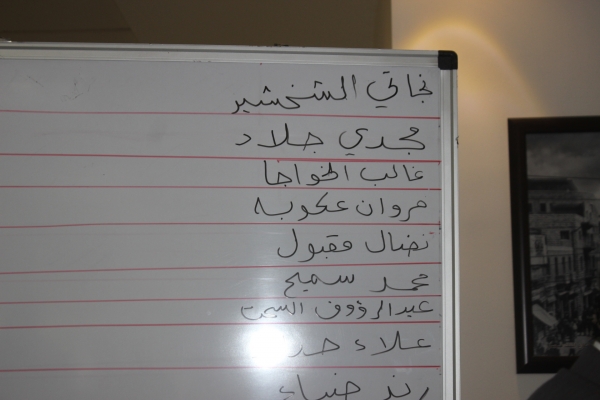 نجاتي الشخشير
مجدي جلاد
غالب الخواجا
مروان عكوبه
نضال مقبول
محمد سميح
عبدالرؤوف
علاء
رند ضياء